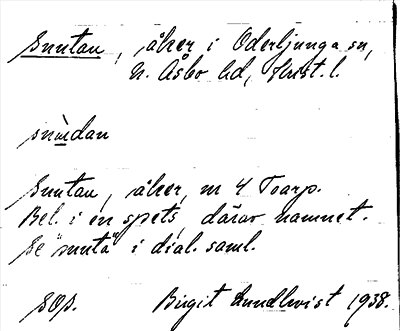 Snutan, åker i Oderljunga sn,
N. Åsbo hd, Krist. l.
snùdan
Snutan, åker, nr 4 Toarp.
Bel. i en spets, därav namnet.
Se "snuta" i dial. saml.
SOp. Birgit Lundkvist 1938.